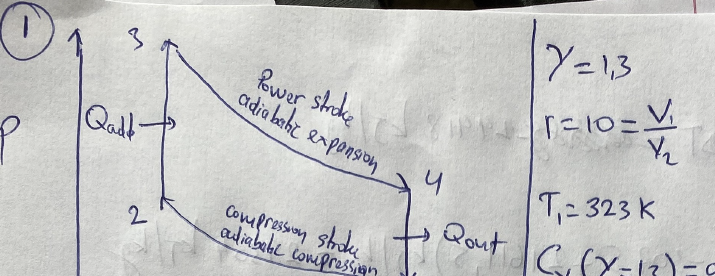 1
3
Power stroke
adiabatic expansion
Qadd
P
4
2
compression stroke
adiabatic compression
Qout
γ=1,3
r=10=V₁/V₂
T₁=323 K